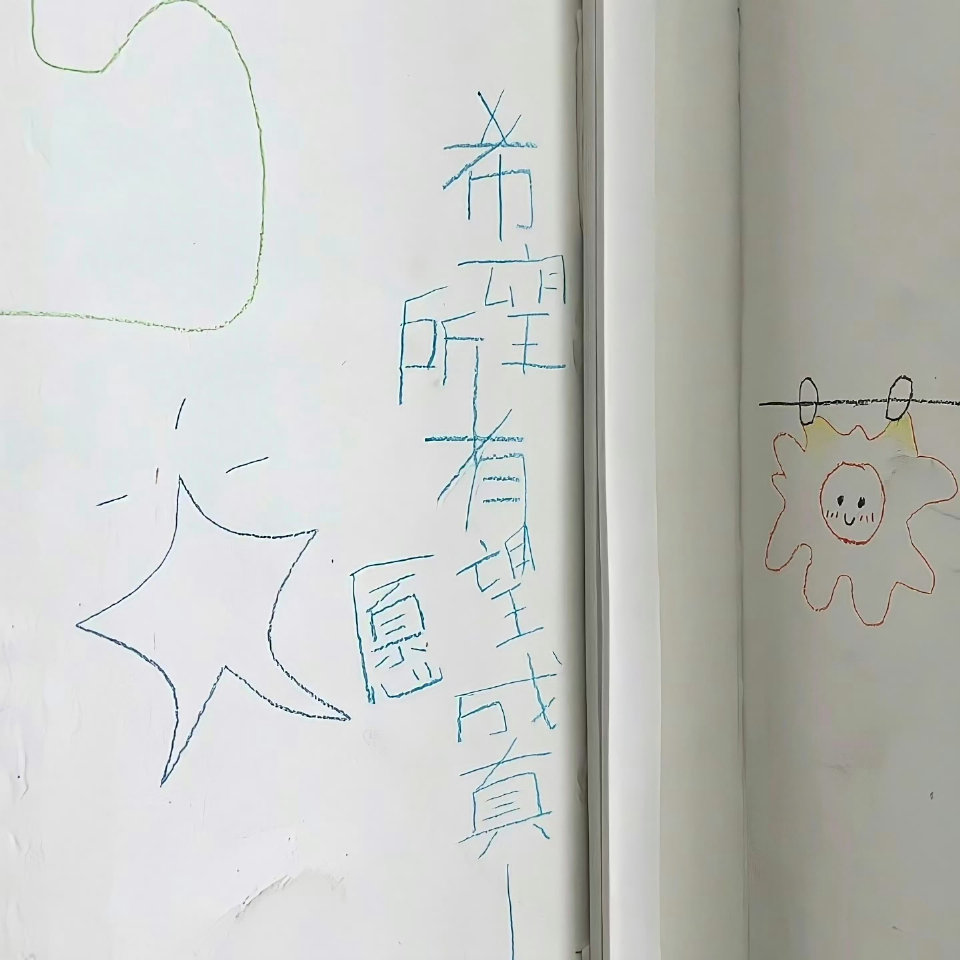 希望所有愿望成真